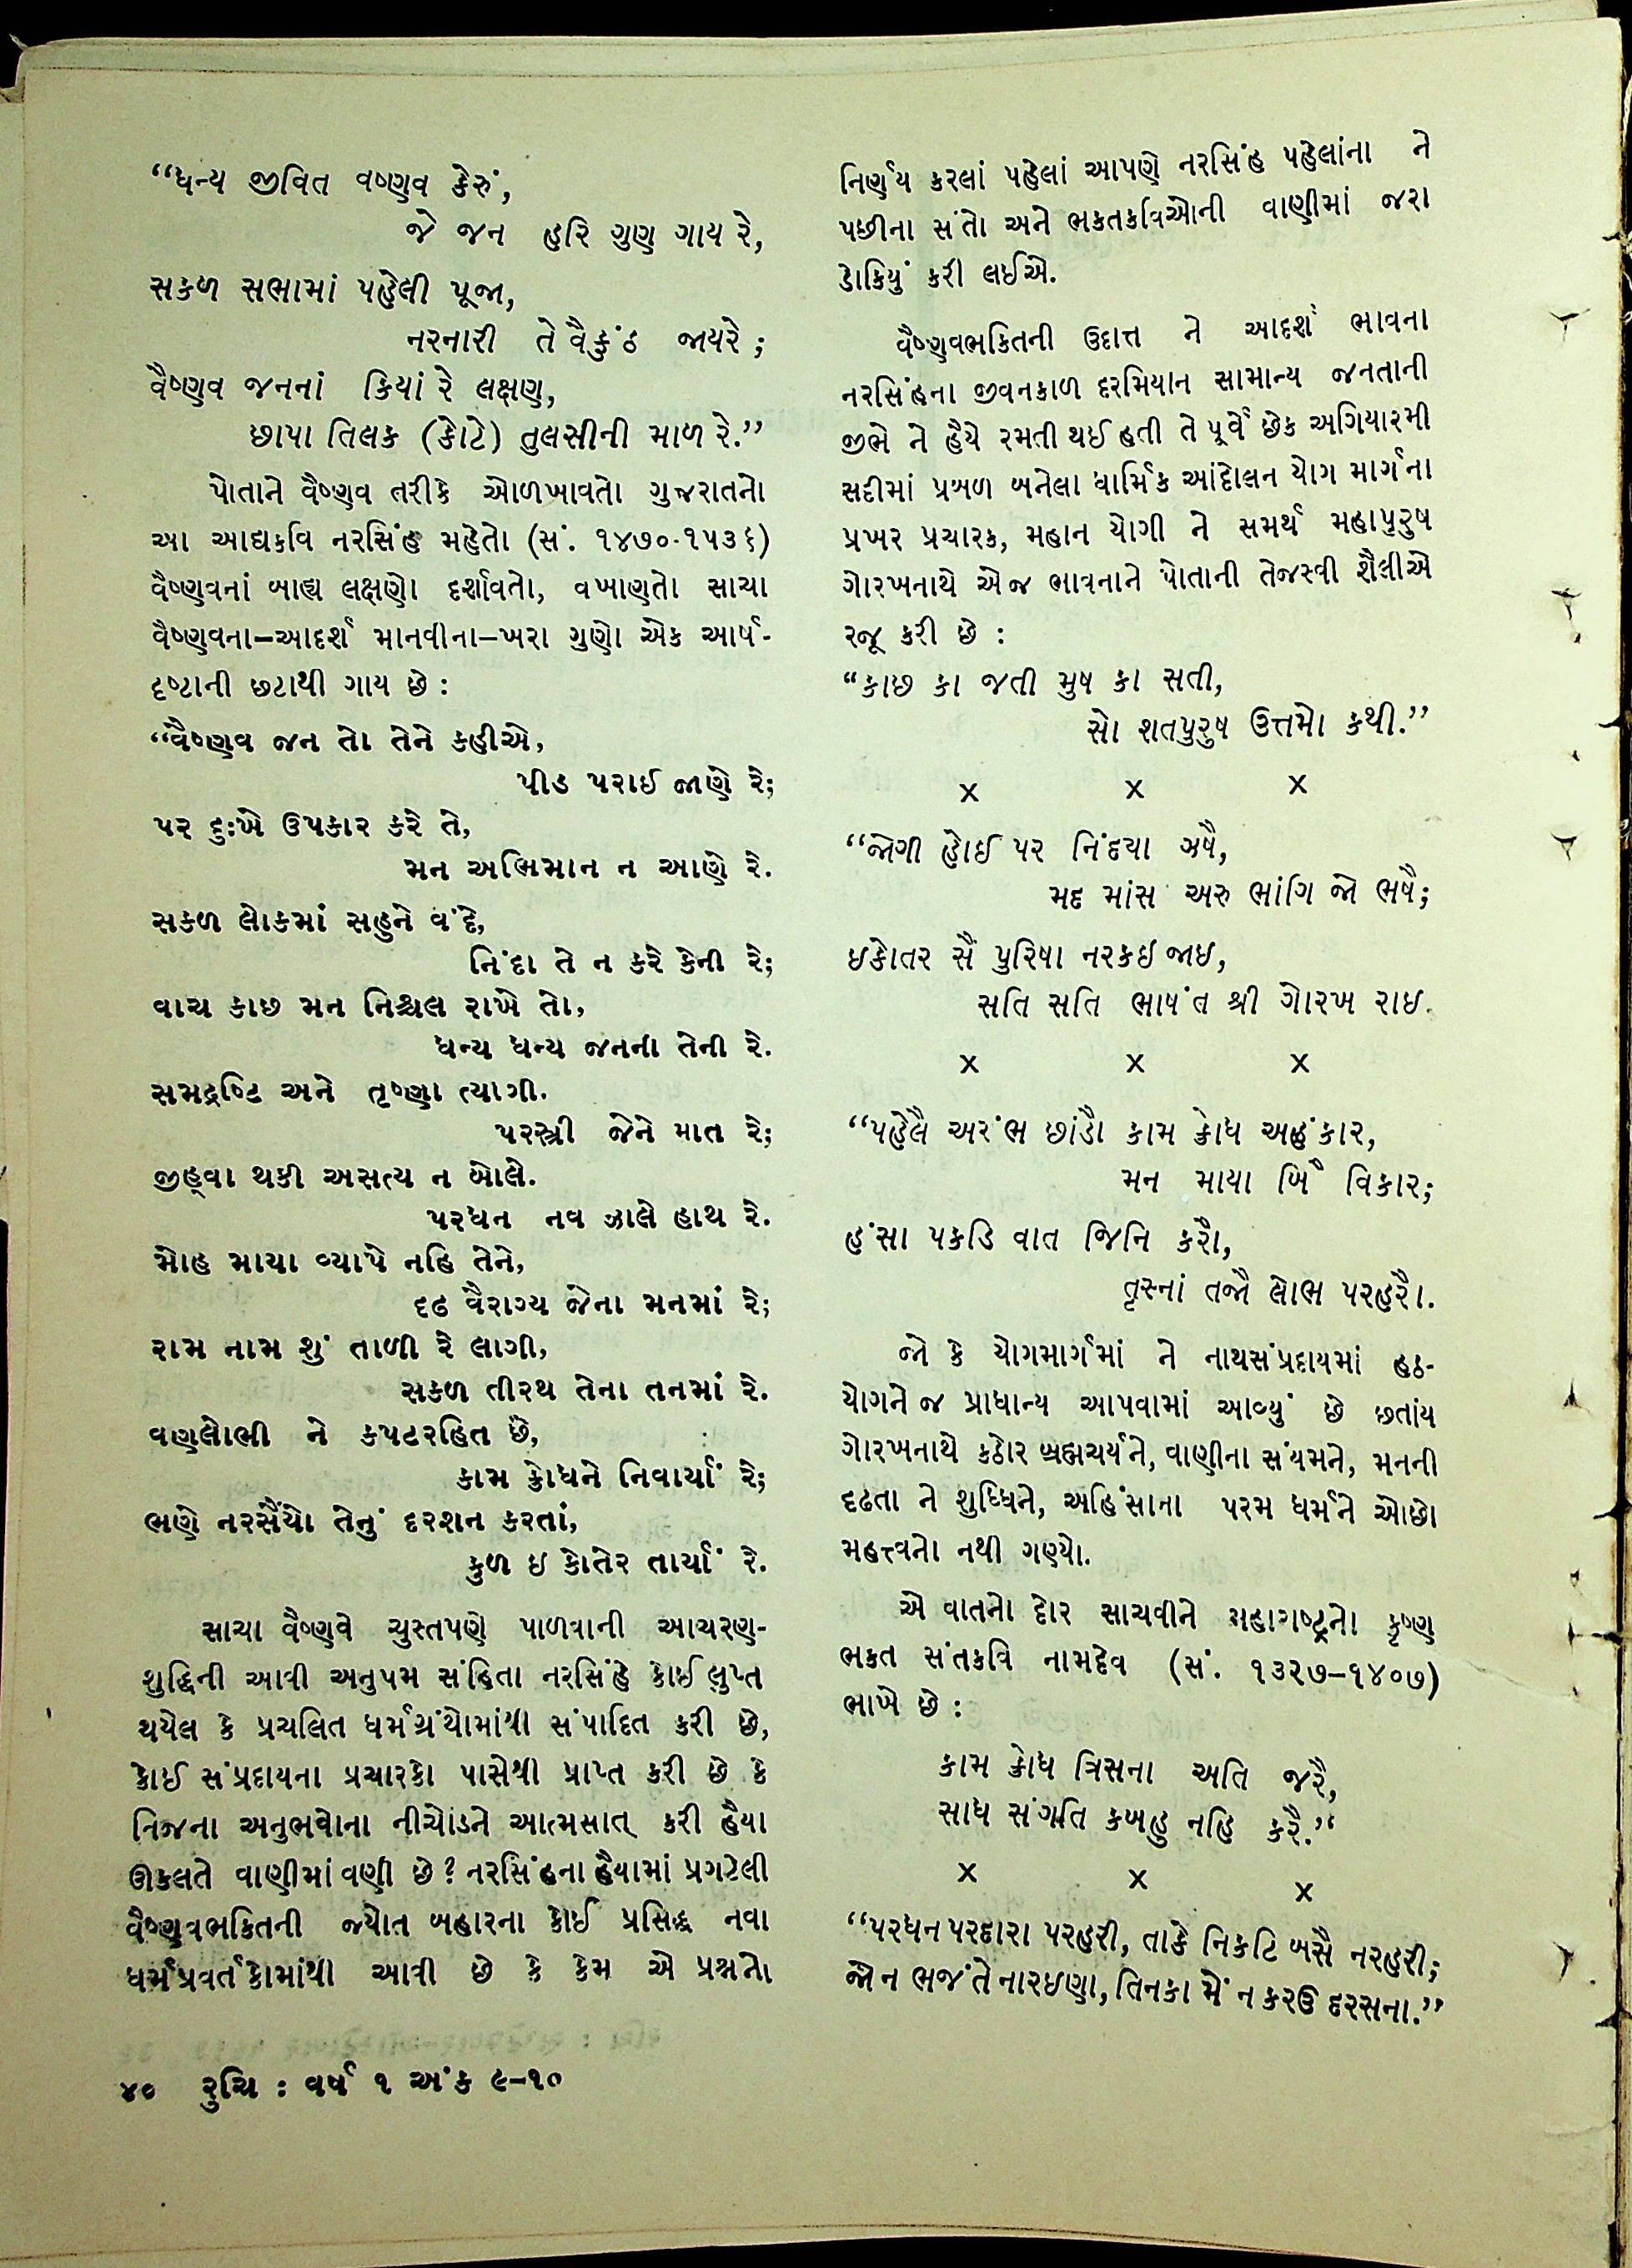 “ધન્ય જીવિત વષ્ણવ કેરું,
જે જન હરિ ગુણ ગાય રે,
સકળ સભામાં પહેલી પૂજા,
નરનારી તે વૈકુંઠ જાયરે;
વૈષ્ણવ જનનાં કિયાં રે લક્ષણ,
છાપા તિલક (કોટે) તુલસીની માળ રે.”
પોતાને વૈષ્ણવ તરીકે ઓળખાવતો ગુજરાતનો
આ આદ્યકવિ નરસિંહ મહેતો (સં. ૧૪૭૦-૧૫૩૬)
વૈષ્ણવનાં બાહ્ય લક્ષણો દર્શાવતો, વખાણતો સાચા
વૈષ્ણવના–આદર્શ માનવીના–ખરા ગુણો એક આર્ષ-
દૃષ્ટાની છટાથી ગાય છે :
“વૈષ્ણવ જન તો તેને કહીએ,
પીડ પરાઈ જાણે રે;
પર દુઃખે ઉપકાર કરે તે,
મન અભિમાન ન આણે રે.
સકળ લોકમાં સહુને વંદે,
નિંદા તે ન કરે કેની રે;
વાચ કાછ મન નિશ્ચલ રાખે તો,
ધન્ય ધન્ય જનની તેની રે.
સમદ્રષ્ટિ અને તૃષ્ણા ત્યાગી.
પરસ્ત્રી જેને માત રે;
જીહ્વા થકી અસત્ય ન બોલે.
પરધન નવ ઝાલે હાથ રે.
મોહ માયા વ્યાપે નહિ તેને,
દઢ વૈરાગ્ય જેના મનમાં રે;
રામ નામ શું તાળી રે લાગી,
સકળ તીરથ તેના તનમાં રે.
વણલોભી ને કપટરહિત છે,
કામ ક્રોધને નિવાર્યાં રે;
ભણે નરસૈંયો તેનું દરશન કરતાં,
કુળ ઇ કોતેર તાર્યાં રે.
સાચા વૈષ્ણવે ચુસ્તપણે પાળવાની આચરણ-
શુદ્ધિની આવી અનુપમ સંહિતા નરસિંહે કોઈ લુપ્ત
થયેલ કે પ્રચલિત ધર્મગ્રંથોમાંથી સંપાદિત કરી છે,
કોઈ સંપ્રદાયના પ્રચારકો પાસેથી પ્રાપ્ત કરી છે કે
નિજના અનુભવોના નીચોડને આત્મસાત્ કરી હૈયા
ઊકલતે વાણીમાં વણી છે? નરસિંહના હૈયામાં પ્રગટેલી
વૈષ્ણવભકિતની જ્યોત બહારના કોઈ પ્રસિદ્ધ નવા
ધર્મપ્રવર્તકોમાંથી આવી છે કે કેમ એ પ્રશ્નનો
નિર્ણય કરલાં પહેલાં આપણે નરસિંહ પહેલાંના ને
પછીના સંતો અને ભકતકવિઓની વાણીમાં જરા
ડોકિયું કરી લઈએ.
વૈષ્ણવભકિતની ઉદાત્ત ને આદર્શ ભાવના
નરસિંહના જીવનકાળ દરમિયાન સામાન્ય જનતાની
જીભે ને હૈયે રમતી થઈ હતી તે પૂર્વે છેક અગિયારમી
સદીમાં પ્રબળ બનેલા ધાર્મિક આંદોલન યોગ માર્ગના
પ્રખર પ્રચારક, મહાન યોગી ને સમર્થ મહાપુરુષ
ગોરખનાથે એજ ભાવનાને પોતાની તેજસ્વી શૈલીએ
રજૂ કરી છે :
“કાછ કા જતી મુષ કા સતી,
સો શતપુરુષ ઉત્તમો કથી.”
x x x
“જોગી હોઈ પર નિંદયા ઝષૈ,
મદ માંસ અરુ ભાંગિ જો ભષૈ;
ઇકોતર સૈં પુરિષા નરકઇ જાઇ,
સતિ સતિ ભાષંત શ્રી ગોરખ રાઇ.
x x x
“પહેલૈ અરંભ છાંડૌ કામ ક્રોધ અહંકાર,
મન માયા બિૈ વિકાર;
હંસા પકડિ વાત જિનિ કરૌ,
તૃસ્નાં તજૌ લોભ પરહરૌ.
જો કે યોગમાર્ગમાં ને નાથસંપ્રદાયમાં હઠ-
યોગને જ પ્રાધાન્ય આપવામાં આવ્યું છે છતાંય
ગોરખનાથે કઠોર બ્રહ્મચર્યને, વાણીના સંયમને, મનની
દઢતા ને શુધ્ધિને, અહિંસાના પરમ ધર્મને ઓછો
મહત્ત્વનો નથી ગણ્યો.
એ વાતનો દોર સાચવીને મહારાષ્ટ્રનો કૃષ્ણ
ભકત સંતકવિ નામદેવ (સં. ૧૩૨૭–૧૪૦૭)
ભાખે છે :
કામ ક્રોધ ત્રિસના અતિ જરૈ,
સાધ સંગતિ કબહુ નહિ કરૈ.“
x x x
“પરધન પરદ્વારા પરહરી, તાકે નિકટિ બસૈ નરહરી;
જો ન ભજંતે નારઇણા, તિનકા મેં ન કરઉ દરસના.”
૪૦ રુચિ : વર્ષ ૧ અંક ૯–૧૦